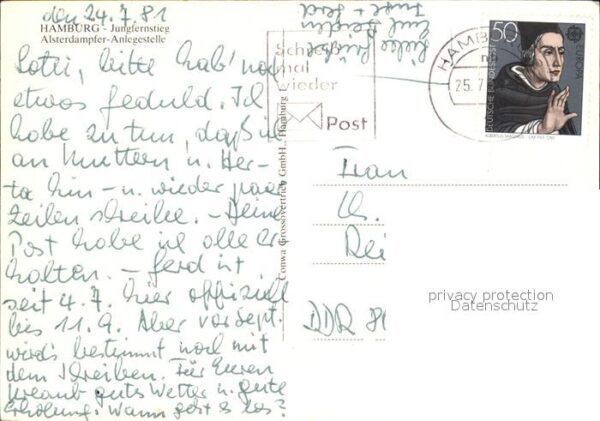 den 24.7.81
HAMBURG - Jungfernstieg
Alsterdampfer-Anlegestelle
Lotti, bitte hab' noch
etwas Geduld. Ich
habe zu tun, daß ich
an Muttern u. Her-
ta hin- u. wieder paar
Zeilen schreibe. - Deine
Post habe ich alle er-
halten. - Gerd ist
seit 4.7. hier offiziell
bis 11.9. Aber vor Sept.
wird's bestimmt noch mit
dem Schreiben. Für Euren
Urlaub gutes Wetter u. gute
Erholung. Wann geht es los?
Liebe Grüße
Euch beiden
Inge + Gerd
Schreib
mal
wieder
Post
HAMB
25.7
50
EUROPA
DEUTSCHE BUNDESPOST
Conwa Grossovertrieb GmbH., Hamburg
Frau
Ch.
Rei
DDR 81
privacy protection
Datenschutz